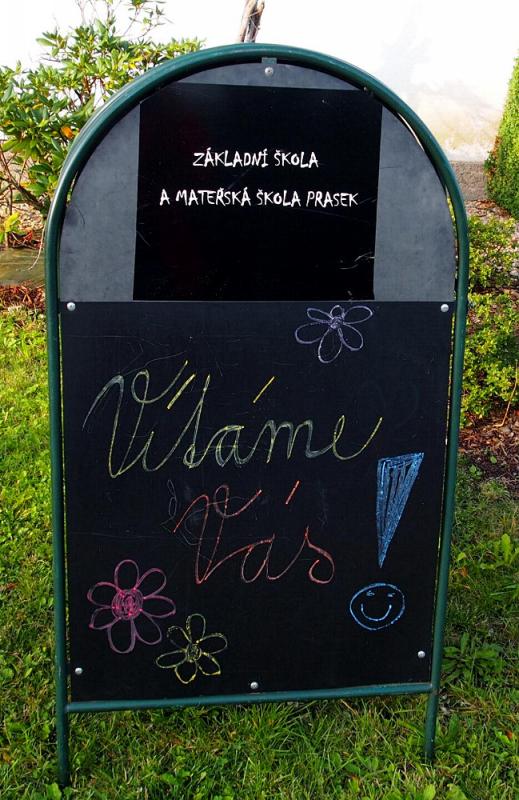 ZÁKLADNÍ ŠKOLA
A MATEŘSKÁ ŠKOLA PRASEK
Vítáme
Vás!